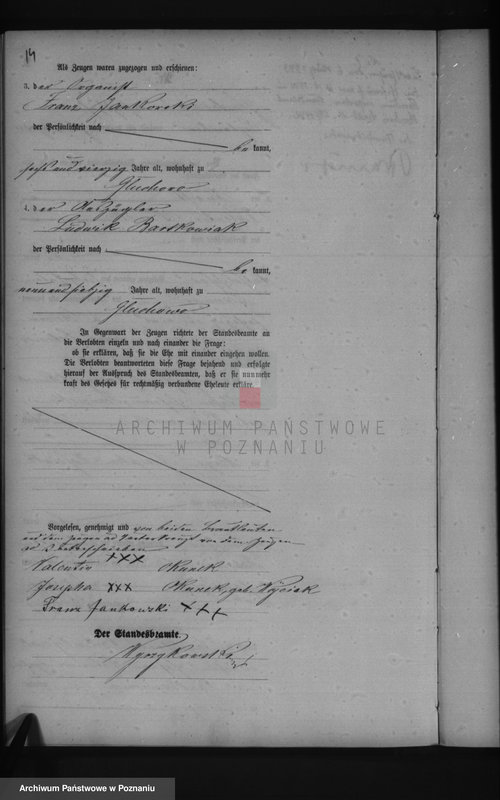 14
Als Zeugen waren zugezogen und erschienen:
3. der Organist
Franz Jankowski
der Persönlichkeit nach
be kannt,
sechs und vierzig Jahre alt, wohnhaft zu
Gluchowo
4. der Auszügler
Ludwik Bartkowiak
der Persönlichkeit nach
be kannt,
neunundsechzig Jahre alt, wohnhaft zu
Gluchowo
In Gegenwart der Zeugen richtete der Standesbeamte an
die Verlobten einzeln und nach einander die Frage:
ob sie erklären, daß sie die Ehe mit einander eingehen wollen.
Die Verlobten beantworteten diese Frage bejahend und erfolgte
hierauf der Ausspruch des Standesbeamten, daß er sie nunmehr
kraft des Gesetzes für rechtmäßig verbundene Eheleute erkläre.
ARCHIWUM PAŃSTWOWE
W POZNANIU
Vorgelesen, genehmigt und von beiden Brautleuten
und dem Zeugen ad von dem Zeugen
ad 3 unterschrieben
Valentin xxx
Josepha xxx geb. Wojciak
Franz Jankowski xxx
Der Standesbeamte.
Archiwum Państwowe w Poznaniu